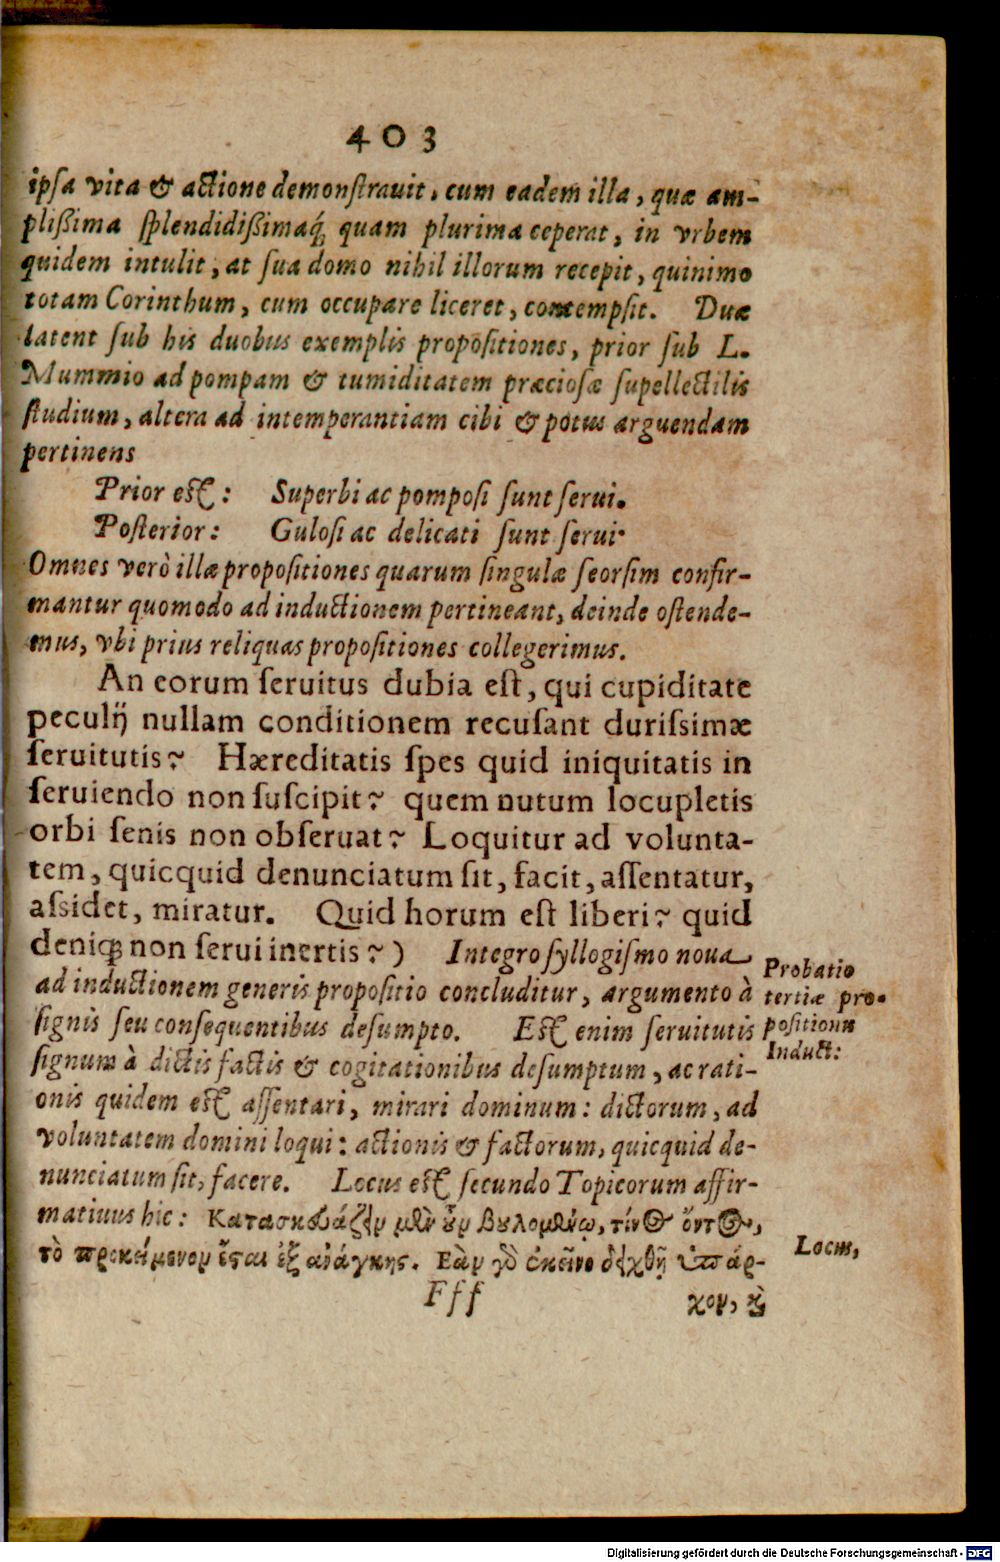 403
ipsa vita & actione demonstrauit, cum eadem illa, quæ am-
plißima splendidißimaq́; quam plurima ceperat, in vrbem
quidem intulit, at sua domo nihil illorum recepit, quinimo
totam Corinthum, cum occupare liceret, contempsit. Duæ
latent sub his duobus exemplis propositiones, prior sub L.
Mummio ad pompam & tumiditatem præciosæ supellectilis
studium, altera ad intemperantiam cibi & potus arguendam
pertinens
Prior est: Superbi ac pomposi sunt serui.
Posterior: Gulosi ac delicati sunt serui·
Omnes verò illæ propositiones quarum singulæ seorsim confir-
mantur quomodo ad inductionem pertineant, deinde ostende-
mus, vbi prius reliquas propositiones collegerimus.
An eorum seruitus dubia est, qui cupiditate
peculij nullam conditionem recusant durissimæ
seruitutis? Hæreditatis spes quid iniquitatis in
seruiendo non suscipit? quem nutum locupletis
orbi senis non obseruat? Loquitur ad volunta-
tem, quicquid denunciatum sit, facit, assentatur,
assidet, miratur. Quid horum est liberi? quid
deniq; non serui inertis?) Integro syllogismo noua
ad inductionem generis propositio concluditur, argumento à
signis seu consequentibus desumpto. Est enim seruitutis
signum à dictis factis & cogitationibus desumptum, ac rati-
onis quidem est assentari, mirari dominum: dictorum, ad
voluntatem domini loqui: actionis & factorum, quicquid de-
nunciatum sit, facere. Locus est secundo Topicorum affir-
matiuus hic: Κατασκευάζειν μὲν οὖν βουλομένῳ, τίνος ὄντος,
τὸ προκείμενον ἔσται ἐξ ἀνάγκης. Εὰν γὸ ἐκεῖνο δειχθῇ ὑπάρ-
Fff χον, καὶ
Probatio
tertiæ pro-
positionis
Induct:
Locus,
Digitalisierung gefördert durch die Deutsche Forschungsgemeinschaft - DFG